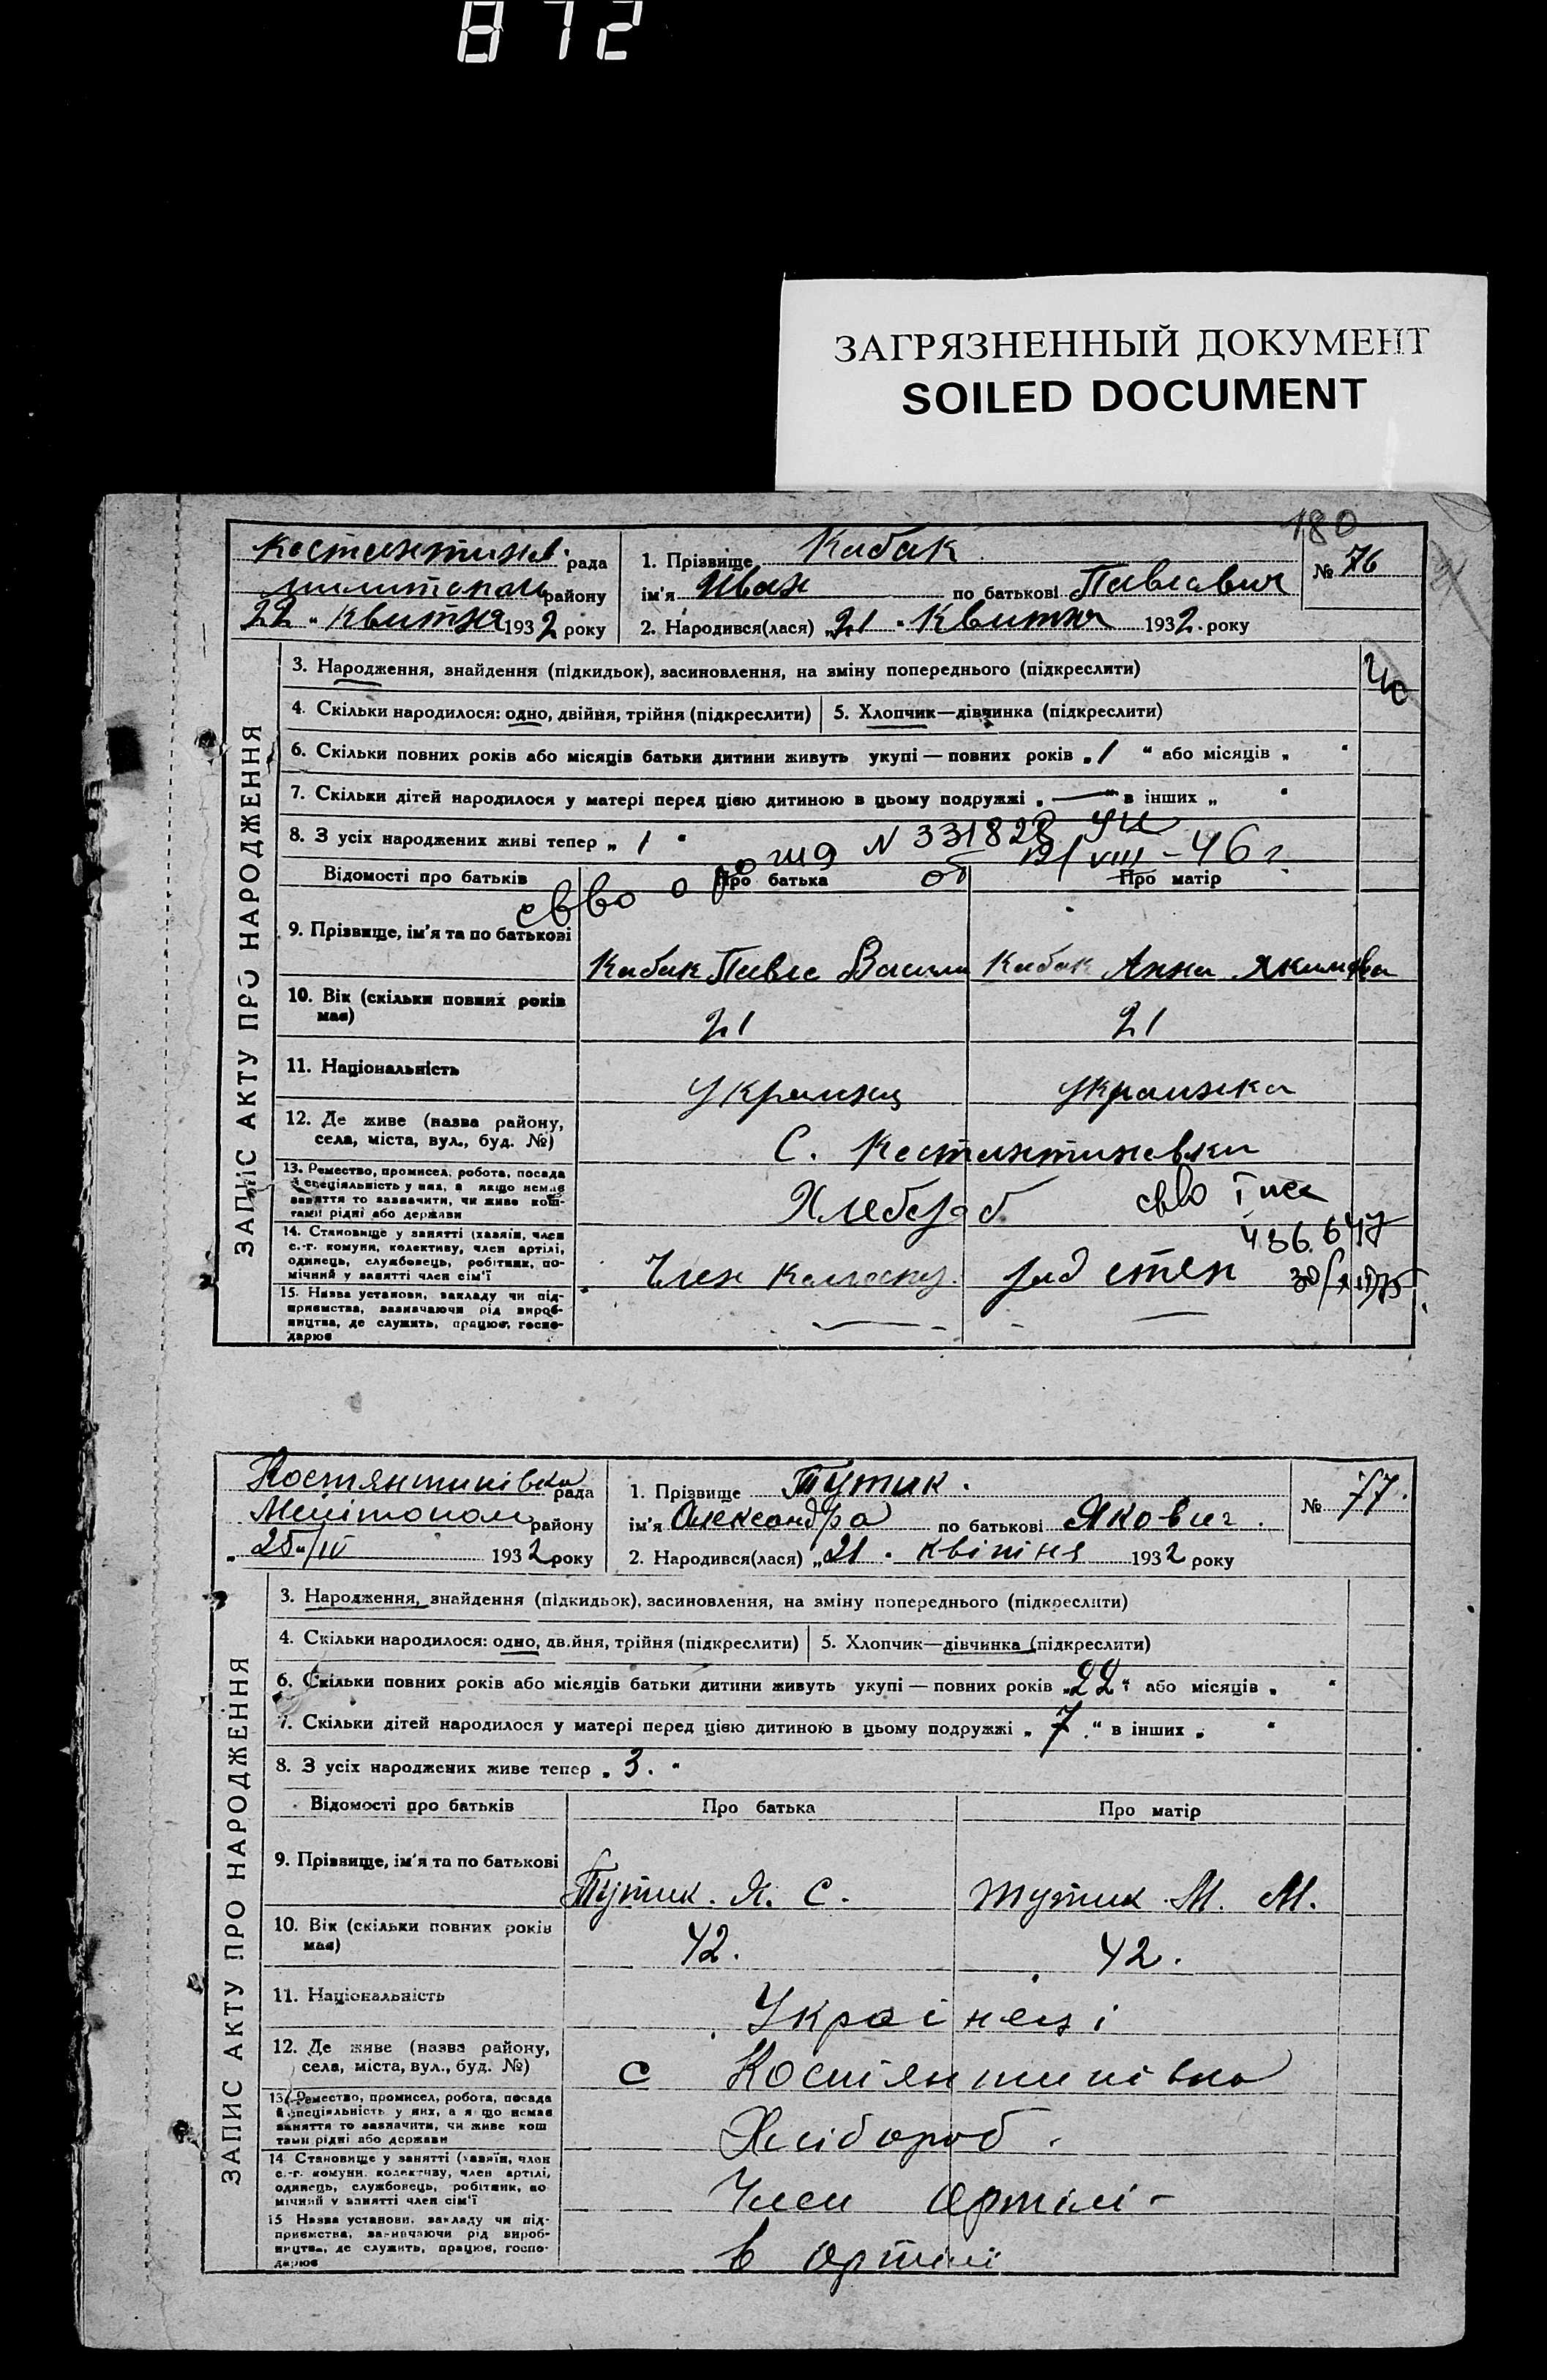 872
ЗАГРЯЗНЕННЫЙ ДОКУМЕНТ
SOILED DOCUMENT
180
ЗАПИС АКТУ ПРО НАРОДЖЕННЯ
Костянтинов. рада
району
22 " Квитня 1932 року
1. Прізвище Кабак
ім'я Иван по батькові Павлович
2. Народився(лася) „21 " Квитня 1932. року
№ 76
3. Народження, знайдення (підкидьок), засиновлення, на зміну попереднього (підкреслити)
4. Скільки народилося: одно, двійня, трійня (підкреслити) 5. Хлопчик—дівчинка (підкреслити)
6. Скільки повних років або місяців батьки дитини живуть укупі — повних років „ 1 " або місяців „ "
7. Скільки дітей народилося у матері перед цією дитиною в цьому подружжі „ — " в інших „ "
8. З усіх народжених живі тепер „ 1 "
N 331828
VIII – 46 г.
Відомості про батьків Про батька Про матір
9. Прізвище, ім'я та по батькові
Кабак Павло Васили Кабак Анна Якимовна
10. Вік (скільки повних років має)
21 21
11. Національність
Украинец Украинка
12. Де живе (назва району, села, міста, вул., буд. №)
С. Костянтиновка
13. Ремество, промисел, робота, посада й спеціяльність у них, а якщо немає заняття то зазначити, чи живе коштами рідні або держави
Хлебороб
14. Становище у занятті (хазяїн, член с.-г. комуни, колективу, член артілі, одинець, службовець, робітник, помічний у занятті член сім'ї
Член
15. Назва установи, закладу чи підприємства, зазначаючи рід виробництва, де служить, працює, господарює
ЗАПИС АКТУ ПРО НАРОДЖЕННЯ
Костянтинівка рада
Мелітопол району
„ 25/IV 1932 року
1. Прізвище Тутик.
ім'я Олександра по батькові Якович.
2. Народився(лася) „21 " квітня 1932 року
№ 77.
3. Народження, знайдення (підкидьок), засиновлення, на зміну попереднього (підкреслити)
4. Скільки народилося: одно, двійня, трійня (підкреслити) 5. Хлопчик—дівчинка (підкреслити)
6. Скільки повних років або місяців батьки дитини живуть укупі — повних років „22" або місяців „ "
7. Скільки дітей народилося у матері перед цією дитиною в цьому подружжі „ 7. " в інших „ "
8. З усіх народжених живе тепер „ 3. "
Відомості про батьків Про батька Про матір
9. Прізвище, ім'я та по батькові
Тутик. Я. С. Тутик М. М.
10. Вік (скільки повних років має)
42. 42.
11. Національність
Українці
12. Де живе (назва району, села, міста, вул., буд. №)
с Костянтинівка
13. Ремество, промисел, робота, посада й спеціяльність у них, а якщо немає заняття то зазначити, чи живе коштами рідні або держави
Хлібороб.
14 Становище у занятті (хазяїн, член с.-г. комуни, колективу, член артілі, одинець, службовець, робітник, помічний у занятті член сім'ї
Член Артілі –
15 Назва установи, закладу чи підприємства, зазначаючи рід виробництва, де служить, працює, господарює
в Артілі